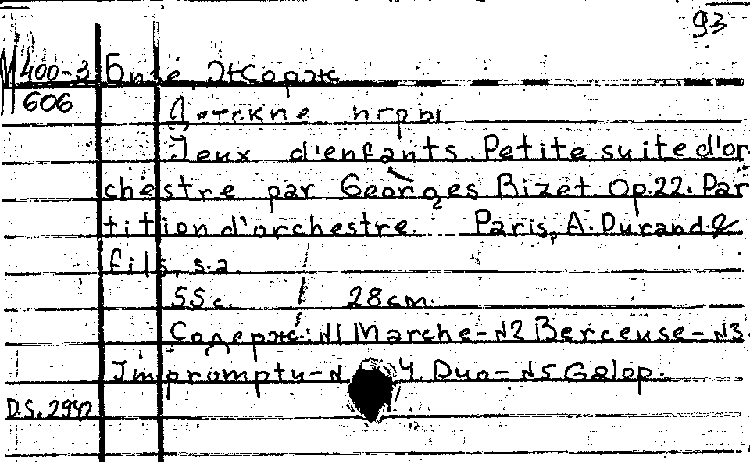 93
М400-3 Бизе, Жорж
606
Детские игры
Jeux d'enfants. Petite suite d'or
chestre par Georges Bizet. Op.22. Par
tition d'orchestre. Paris, A. Durand &
fils, s.a.
55с. 28cm.
Содерж: №1 Marche-№2 Berceuse-№3
Impromptu-№4. Duo-№5 Galop.
D.S. 2992